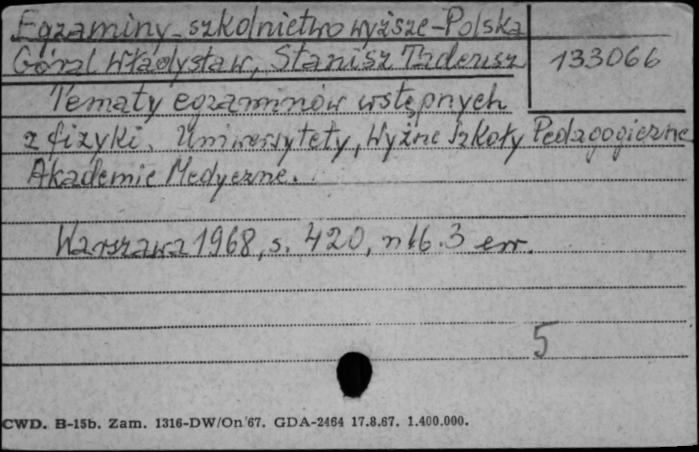 Egzaminy - szkolnictwo wyższe - Polska
Góral Władysław, Stanisz Tadeusz
133066
Tematy egzaminów wstępnych
z fizyki. Uniwersytety, Wyższe Szkoły Pedagogiczne
Akademie Medyczne.
Warszawa 1968, s. 420, nlb. 3 err.
5
CWD. B-15b. Zam. 1316-DW/On'67. GDA-2464 17.8.67. 1.400.000.